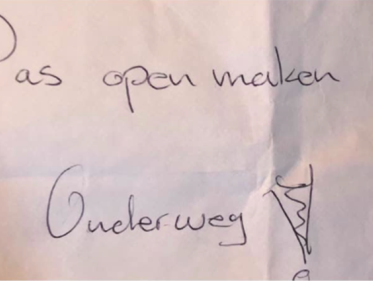 Pas open maken
Onderweg